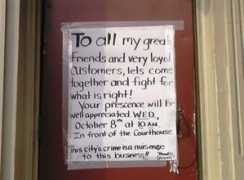 To all my great
friends and very loyal
customers, lets come
together and fight for
what is right!
Your presence will be
well appreciated WED,
October 8th at 10 AM.
In front of the Courthouse.
This city's crime is a nuisance
to this business!!